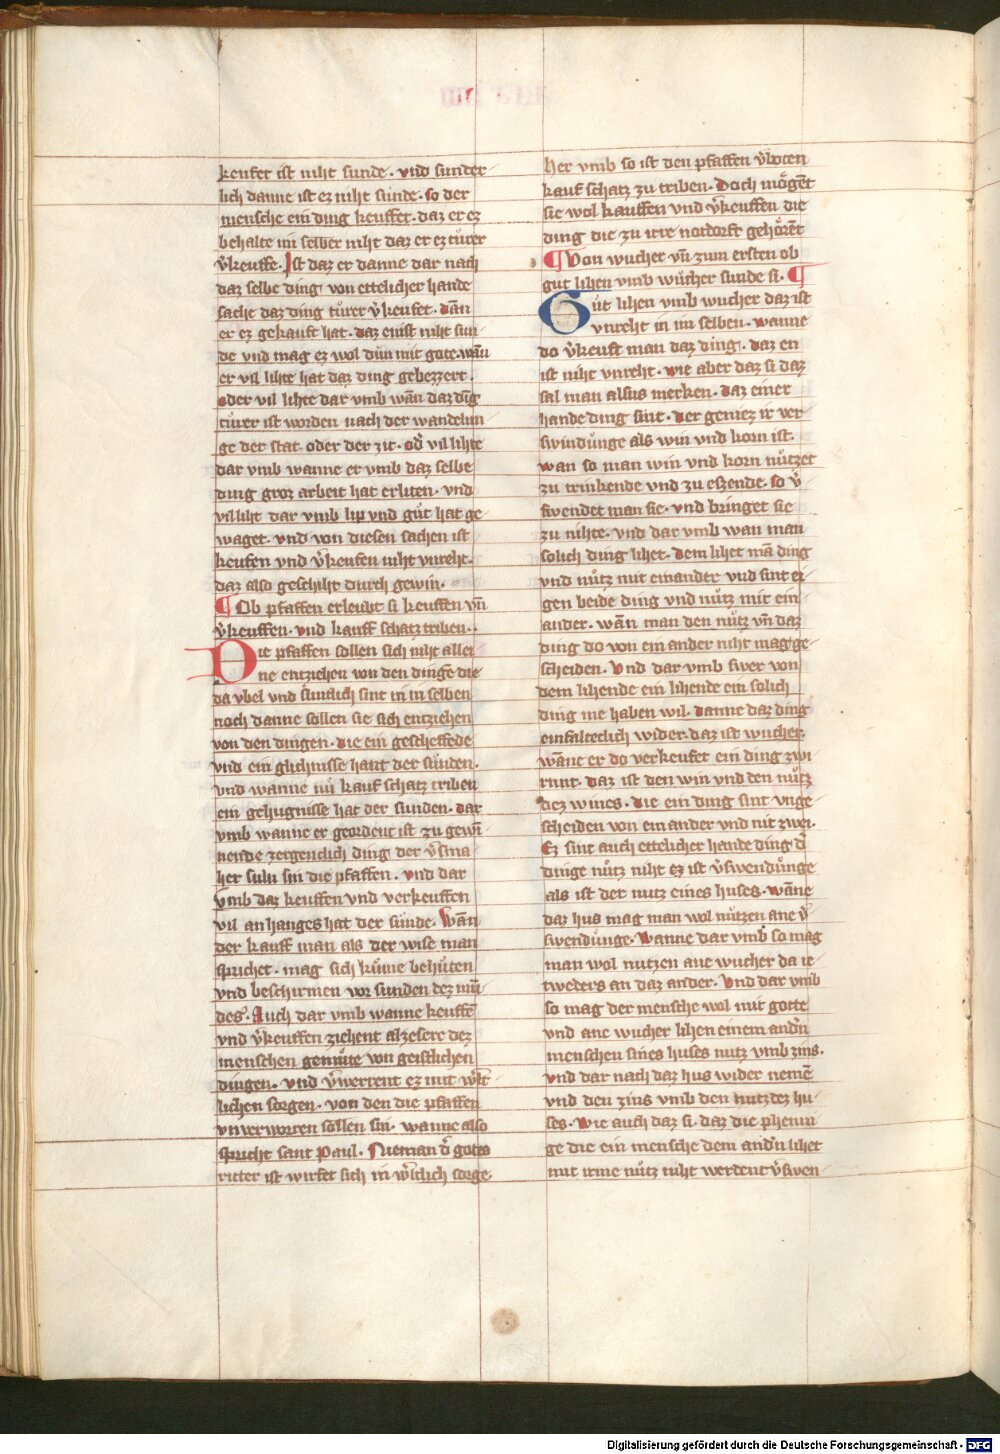 keufet ist niht sunde. vnd sunder
lich danne ist ez niht sunde. so der
mensche ein ding keuffet. daz er ez
behalte im selber niht daz er ez tůrer
v̄keuffe. Ist daz er danne dar nach
daz selbe ding von ettelicher hande
sache daz ding tůrer v̄keufet. dañ
er ez gekauft hat. daz enist niht sun
de vnd mag ez wol důn mit gote. wañ
er vil lihte hat daz ding gebezzert.
oder vil lihte dar vmb wañ daz ding
tůrer ist worden nach der wandelun
ge der stat. oder der zit. od̄ vil lihte
dar vmb wanne er vmb daz selbe
ding groz arbeit hat erliten. vnd
vil liht dar vmb lip vnd gůt hat ge
waget. vnd von diesen sachen ist
keufen vnd v̄keufen niht vnreht.
daz also geschiht durch gewin.
¶ Ob pfaffen erleubt si keuffen vn̄
v̄keuffen. vnd kauff schatz triben.
Die pfaffen sollen sich niht allei
ne entziehen von den dingē die
da vbel vnd suntlich sint in in selben
noch danne sollen sie sich entziehen
von den dingen. die ein gescheffede
vnd ein glichnisse hant der sůnden.
vnd wanne nů kauf schatz triben
ein gehugnisse hat der sunden. dar
vmb wanne er geordent ist zu gewi
nende zergenclich ding der v̄sma
her suln sin die pfaffen. vnd dar
vmb daz keuffen vnd verkeuffen
vil anhanges hat der sůnde. Wañ
der kauff man als der wise man
sprichet. mag sich kůme behůten
vnd beschirmen vor sunden dez mū
des. Auch dar vmb wanne keuffē
vnd v̄keuffen ziehent alzesere dez
menschen gemůte von geistlichen
dingen. vnd v̄werrent ez mit w̄lt
lichen sorgen. von den die pfaffen
vnverworren sollen sin. wanne also
spricht sant Paul. Nieman d̄ gottes
ritter ist wirfet sich in w̄ltlich sorge.
her vmb so ist den pfaffen v̄boten
kauf schatz zu triben. Doch mőgent
sie wol kauffen vnd v̄keuffen die
ding die zu irre notdorft gehőrēt
¶ Von wucher vn̄ zum ersten ob
gut lihen vmb wůcher sunde si. ¶
Gůt lihen vmb wucher daz ist
vnreht in im selben. wanne
do v̄keuft man daz ding. daz en
ist niht vnreht. wie aber daz si daz
sal man alsus merken. daz einer
hande ding sint. der geniez ir ver
swindůnge als win vnd korn ist.
wan so man win vnd korn nůtzet
zu trinkende vnd zu eszende. so v̄
swendet man sie. vnd bringet sie
zu nihte. vnd dar vmb wan man
solich ding lihet. dem lihet mā ding
vnd nůtz mit einander vnd sint ei
gen beide ding vnd nůtz mit ein
ander. wañ man den nůtz vn̄ daz
ding do von ein ander niht mag ge
scheiden. Vnd dar vmb swer von
dem lihende ein lihende ein solich
ding me haben wil. danne daz ding
einfalteclich wider. daz ist wucher.
wāne er do verkeufet ein ding zwi
runt. daz ist den win vnd den nůtz
dez wines. die ein ding sint vnge
scheiden von ein ander vnd nit zwei.
Ez sint auch ettelicher hande ding d̄
dinge nůtz niht ez ist v̄swendůnge
als ist der nutz eines huses. wāne
daz hus mag man wol nůtzen ane v̄
swendůnge. Wanne dar vmb so mag
man wol nutzen ane wucher da ie
tweders an daz ander. Vnd dar vmb
so mag der mensche wol mit gotte
vnd ane wucher lihen einem andn̄
menschen sines huses nutz vmb zins.
vnd dar nach daz hus wider nemē
vnd den zins vmb den nutz dez hu
ses. Wie auch daz si. daz die phenni
ge die ein mensche dem andn̄ lihet
mit irme nůtz niht werdent v̄swen
Digitalisierung gefördert durch die Deutsche Forschungsgemeinschaft - DFG